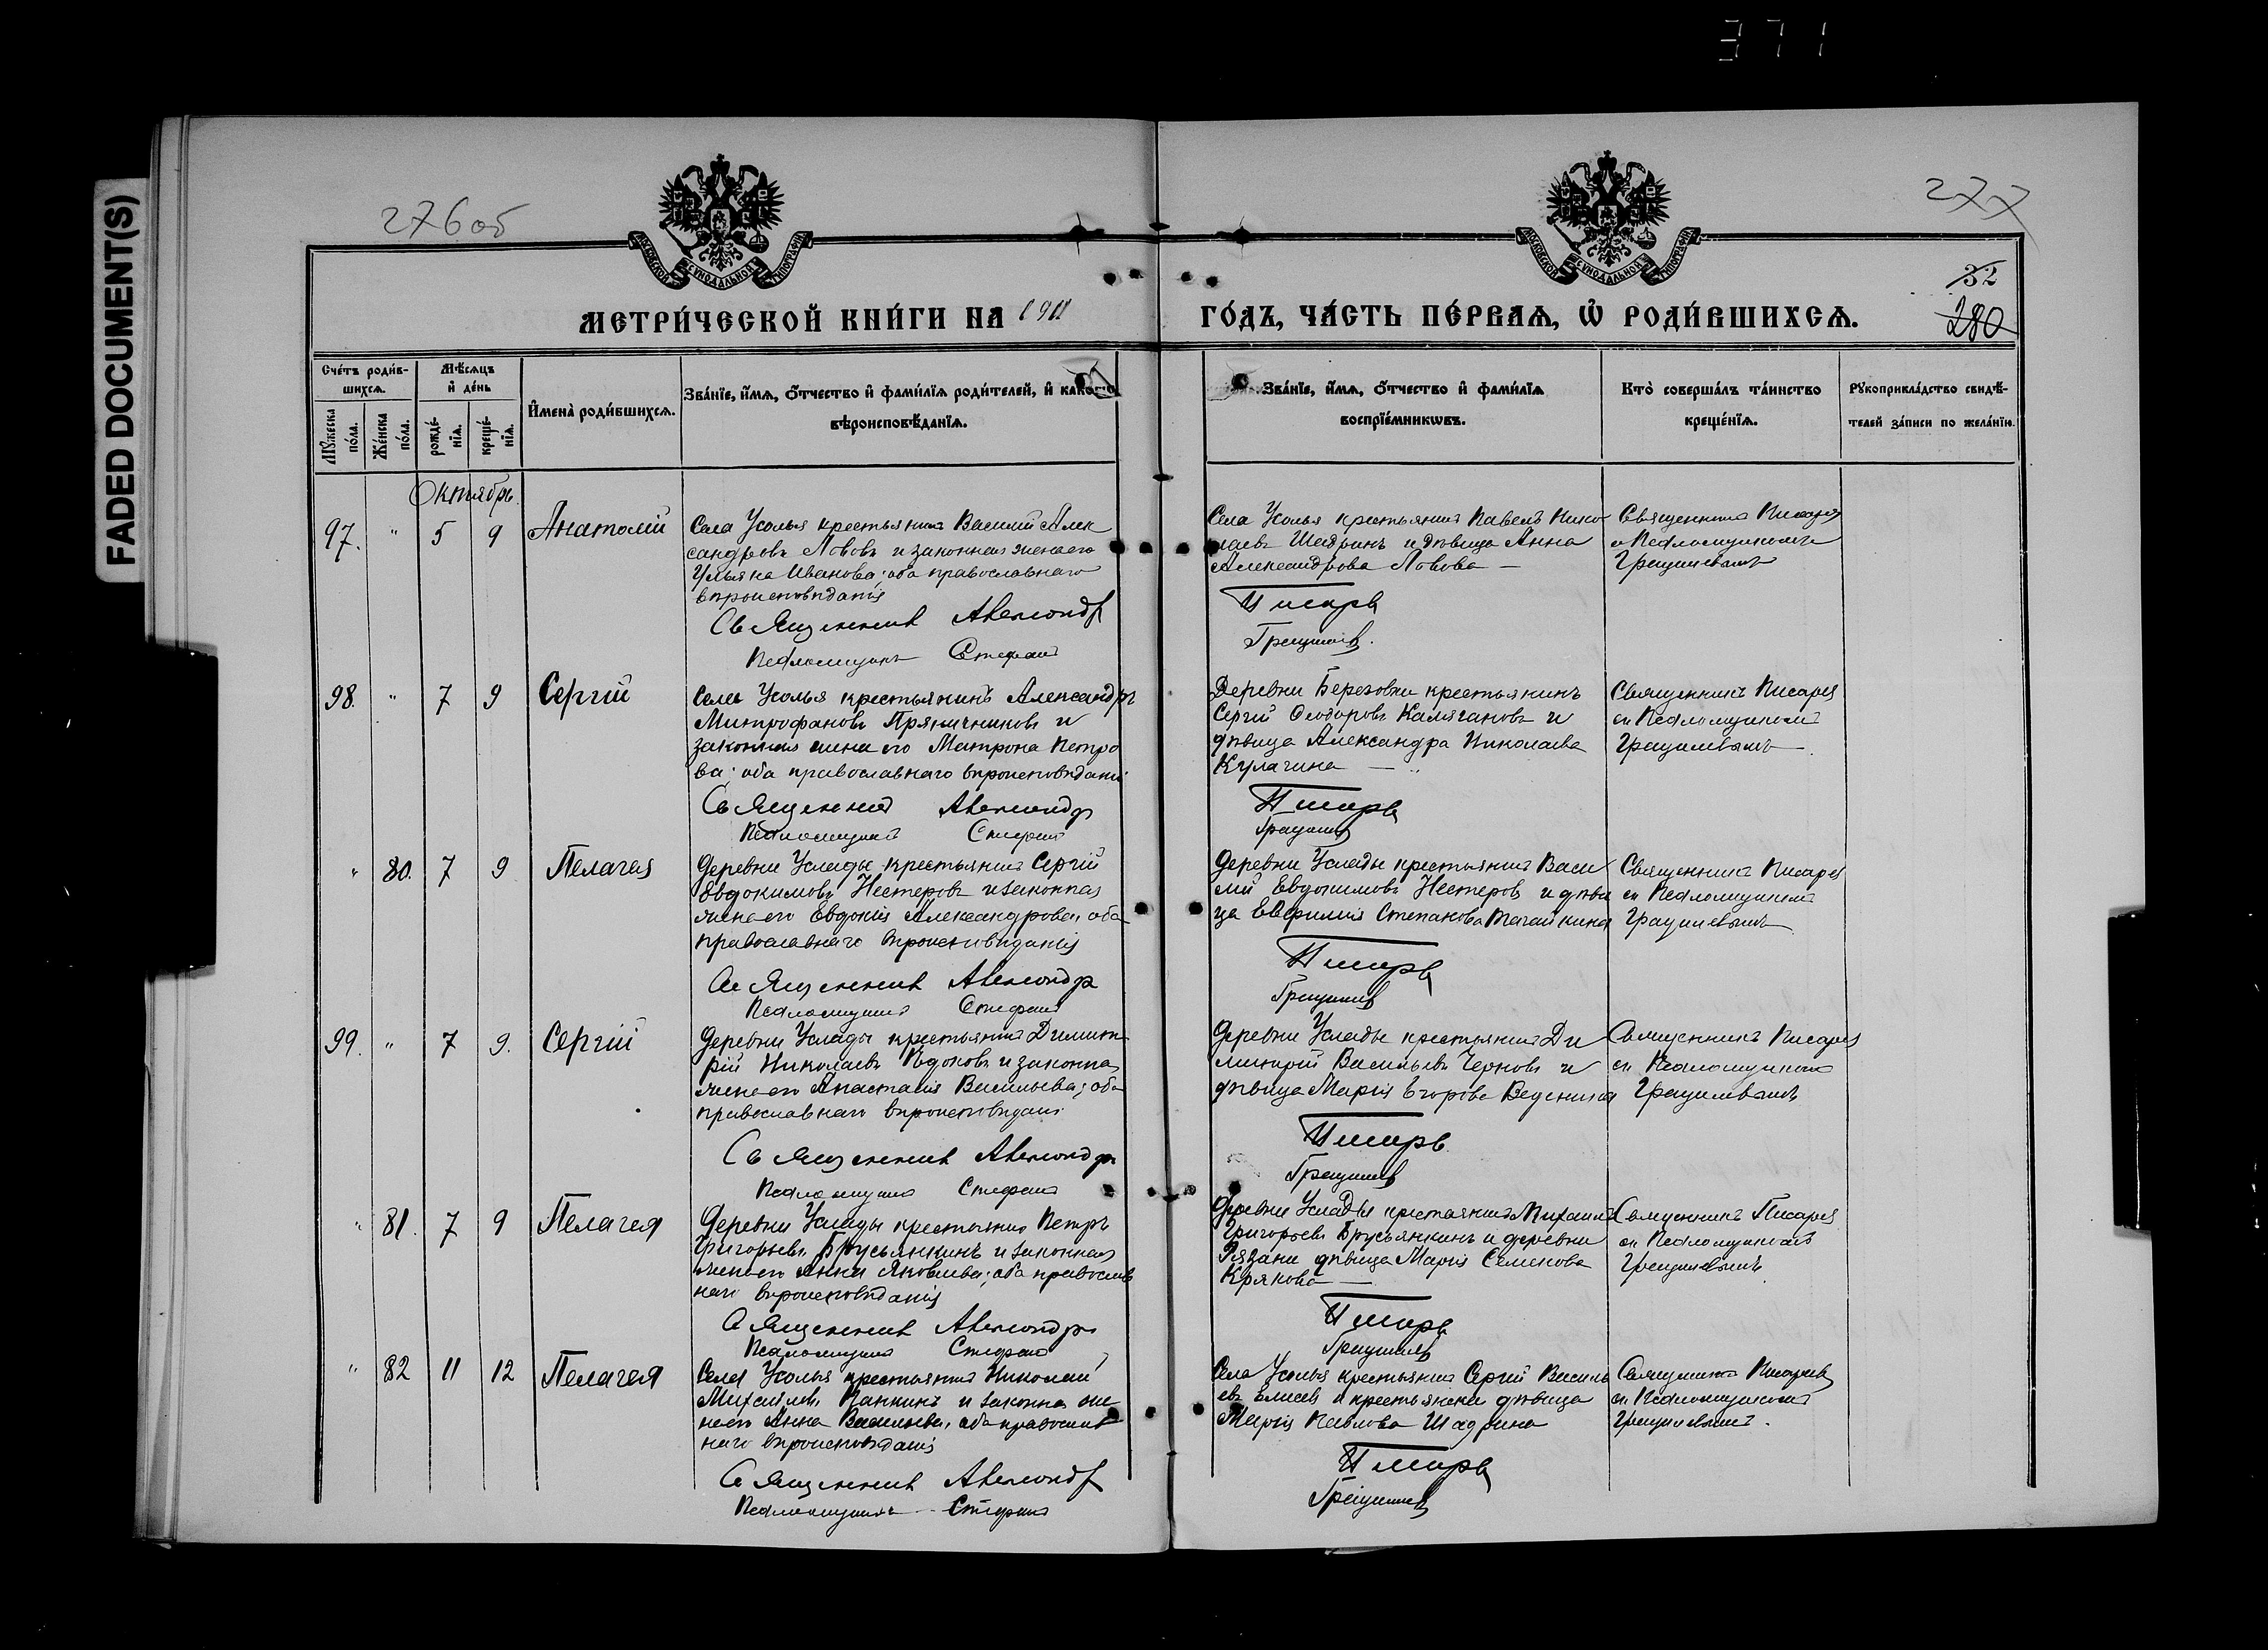 371
FADED DOCUMENT(S)
276об
277
МОСКОВСКОЙ СУНОДАЛЬНОЙ ТИПОГРАФIИ
МОСКОВСКОЙ СУНОДАЛЬНОЙ ТИПОГРАФIИ
32
280
МЕТРИ́ЧЕСКОЙ КНИ́ГИ НА 1911
ГО́ДЪ, ЧА́СТЬ ПЕ́РВАѦ, Ѡ РОДИ́ВШИХСѦ.
Сче́тъ роди́в-
шихсѧ.
Мꙋ́жеска по́ла.
Же́нска по́ла.
Мѣ́сѧцъ
и҆ де́нь
рожде́-нїѧ.
креще́-нїѧ.
И҆мена̀ роди́вшихсѧ.
Зва́нїе, и҆́мѧ, ѻ҆́тчество и҆ фами́лїѧ роди́телей, и҆ како́гѡ
вѣроисповѣ́данїѧ.
Зва́нїе, и҆́мѧ, ѻ҆́тчество и҆ фами́лїѧ
воспрїе́мникѡвъ.
Кто̀ соверша́лъ та́инство
креще́нїѧ.
Рꙋкоприкла́дство свидѣ́-
телей за́писи по жела́нїю.
Октябрь.
97. " 5 9 Анатолій
Села Усолья крестьянинъ Василій Алек
сандровъ Лововъ и законная жена его
Ульяна Иванова; оба православнаго
вѣроисповѣданія
Священникъ Александр
Псаломщикъ Стефанъ
Села Усолья крестьянинъ Павелъ Нико
лаевъ Шадринъ и дѣвица Анна
Александрова Ловова —
Писарв
Грацилев.
Священникъ Писарев
с Псаломщикомъ
Грацилевымъ
98. " 7 9 Сергій
Села Усолья крестьянинъ Александръ
Митрофановъ Пряничниковъ и
законная жена его Матрона Петро
ва; оба православнаго вѣроисповѣдані
Священникъ Александр
Псаломщикъ Стефанъ
Деревни Березовки крестьянинъ
Сергій Ѳеодоровъ и
дѣвица Александра Николаева
Кулагина —
Писарв
Грацилев
Священникъ Писарев
съ Псаломщикомъ
Грацилевымъ
" 80. 7 9 Пелагея
Деревни Услады крестьянинъ Сергій
Евдокимовъ Нестеровъ и законная
жена его Евдокія Александрова, оба
православнаго вѣроисповѣданія
Священникъ Александр
Псаломщикъ Стефанъ
Деревни Услады крестьянинъ Васи
лій Евдокимовъ Нестеровъ и дѣви
ца Евфимія Степанова
Писарв
Грацилев
Священникъ Писарев
съ Псаломщикомъ
Грацилевымъ
99. " 7 9. Сергій
Деревни Услады крестьянинъ Димит
рій Николаевъ и законная
жена его Анастасія Васильева; оба
православнаго вѣроисповѣдані
Священникъ Александр
Псаломщикъ Стефанъ
Деревни Услады крестьянинъ Ди
митрій Васильевъ Черновъ и
дѣвица Марія Егорова Веденина
Писарв
Грацилев
Священникъ Писарев
съ Псаломщикомъ
Грацилевымъ
" 81. 7 9 Пелагея
Деревни Услады крестьянинъ Петръ
Григорьевъ Брусьянкинъ и законная
жена его Анна Яковлева; оба православ
наго вѣроисповѣданія
Священникъ Александр
Псаломщикъ Стефанъ
Деревни Услады крестьянинъ Михаилъ
Григорьевъ Брусьянкинъ и деревни
Рязани дѣвица Марія Семенова
Крякова —
Писарв
Грацилев
Священникъ Писарев
съ Псаломщикомъ
Грацилевымъ
" 82 11 12 Пелагея
Села Усолья крестьянинъ Николай
Михайловъ Панкинъ и законна же
на его Анна Васильева, оба православ
наго вѣроисповѣданія
Священникъ Александр
Псаломщикъ Стефанъ
Села Усолья крестьянинъ Сергій Василь
евъ Елисеев и крестьянска дѣвица
Марія Павлова Шадрина
Писарв
Грацилев
Священникъ Писарев
съ Псаломщикомъ
Грацилевымъ.